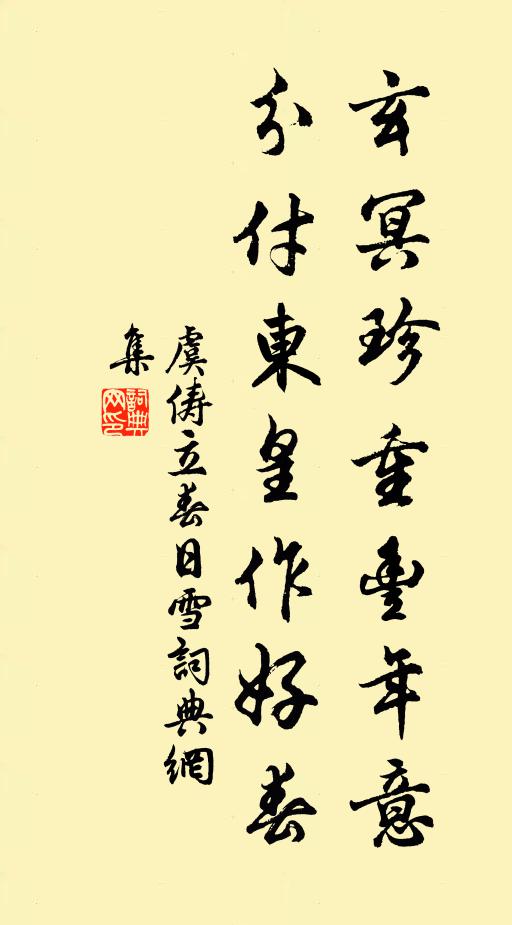 玄冥珍重豐年意
分付東皇作好春
虞儔立春日雪詞典網
集
詞典
网印